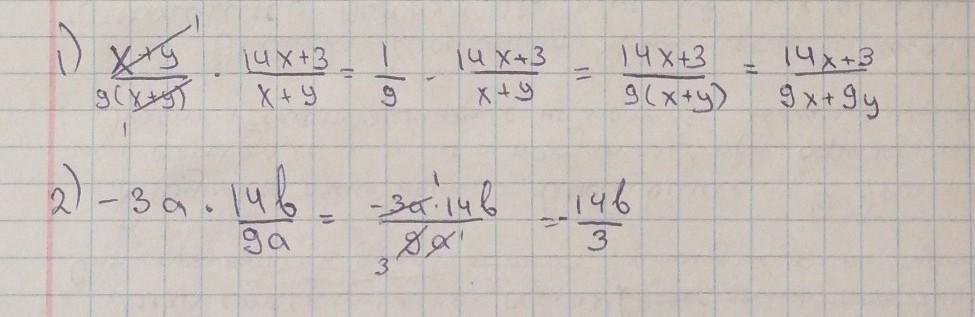 1) (x+y)/(9(x+y)) · (14x+3)/(x+y) = 1/9 · (14x+3)/(x+y) = (14x+3)/(9(x+y)) = (14x+3)/(9x+9y)
2) -3a · 14b/9a = (-3a · 14b)/(9a) = -14b/3